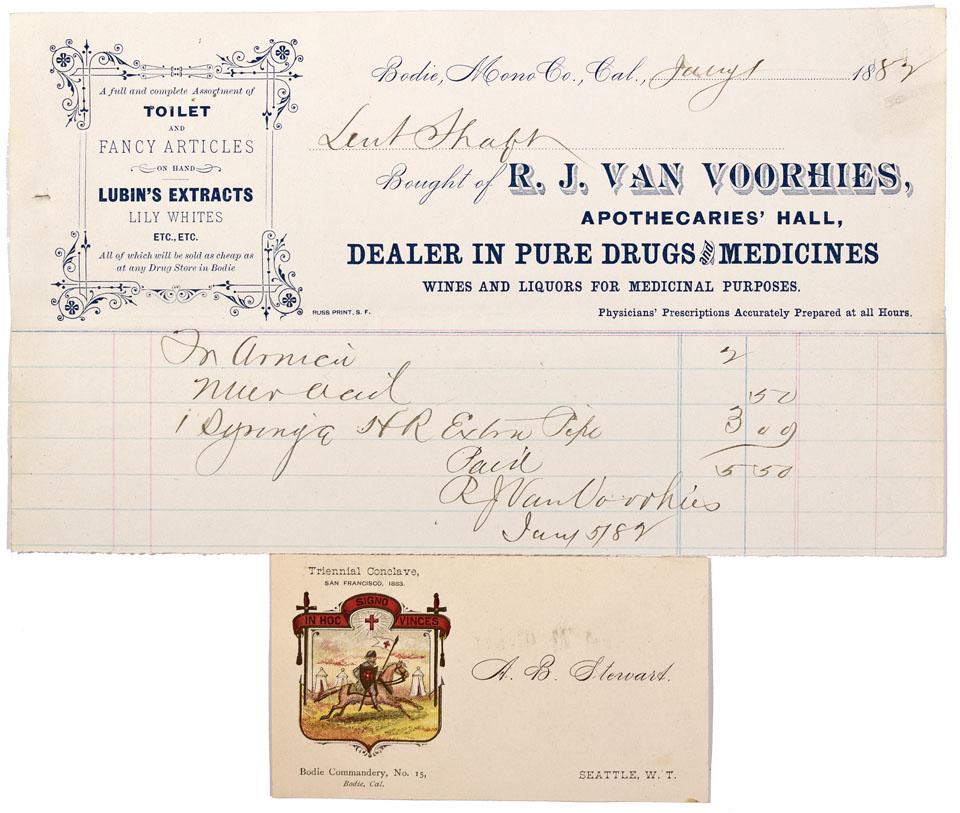 A full and complete Assortment of
TOILET
AND
FANCY ARTICLES
ON HAND
LUBIN'S EXTRACTS
LILY WHITES
ETC., ETC.
All of which will be sold as cheap as
at any Drug Store in Bodie
Bodie, Mono Co., Cal., Jany 1 1882
Lent Shaft
Bought of R. J. VAN VOORHIES,
APOTHECARIES' HALL,
DEALER IN PURE DRUGS and MEDICINES
WINES AND LIQUORS FOR MEDICINAL PURPOSES.
RUSS PRINT, S. F.
Physicians' Prescriptions Accurately Prepared at all Hours.
Arnica 2
Acid 50
1 Syringe H R Extra Pipe 3 00
Paid 5 50
R J Van Voorhies
Jany 5/82
Triennial Conclave,
SAN FRANCISCO, 1883.
IN HOC SIGNO VINCES
A. B. Stewart.
Bodie Commandery, No. 15,
Bodie, Cal.
SEATTLE, W. T.